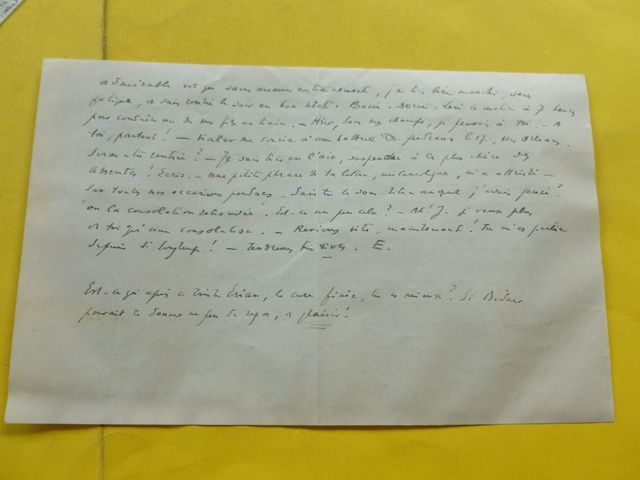 admirable est que sans aucun entraînement, j'ai très bien marché, sans
fatigue, et suis rentré le soir en bon état. Bain. Dormi. Levé ce matin à 7 heures
pour conduire un de mes fils au train. — Hier, dans ces champs, je pensais à toi. — À
toi, partout ! — me convie à une battue de perdreaux le 17,
Seras-tu rentrée ? — Je suis très en l'air, suspendu à la plus chère des
absentes ! Écris. — Une petite phrase de ta lettre, mélancolique, m'a attristé —
sur toutes nos occasions perdues. Sais-tu ce vous auquel j'avais pensé ?
"ou la consolation retrouvée". Est-ce un peu cela ? — Ah ! J. je veux plus
de toi qu'une consolation. — Reviens vite, maintenant ! Tu m'es partie
depuis si longtemps ! — Tendresses très vives. E.
Est-ce qu'après ce triste, la cure finie, tu es mieux ? Si
pouvait te donner un peu de repos, quel plaisir !